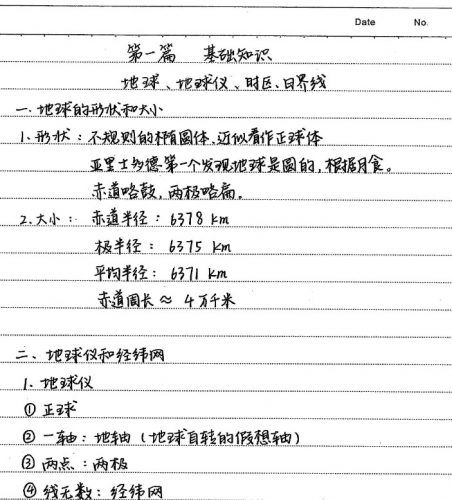 Date No.
第一篇 基础知识
地球、地球仪、时区、日界线
一、地球的形状和大小
1、形状：不规则的椭圆体，近似看作正球体
亚里士多德第一个发现地球是圆的，根据月食。
赤道略鼓，两极略扁。
2、大小：赤道半径：6378 km
极半径：6375 km
平均半径：6371 km
赤道周长≈4万千米
二、地球仪和经纬网
1、地球仪
①正球
②一轴：地轴（地球自转的假想轴）
③两点：两极
④线无数：经纬网